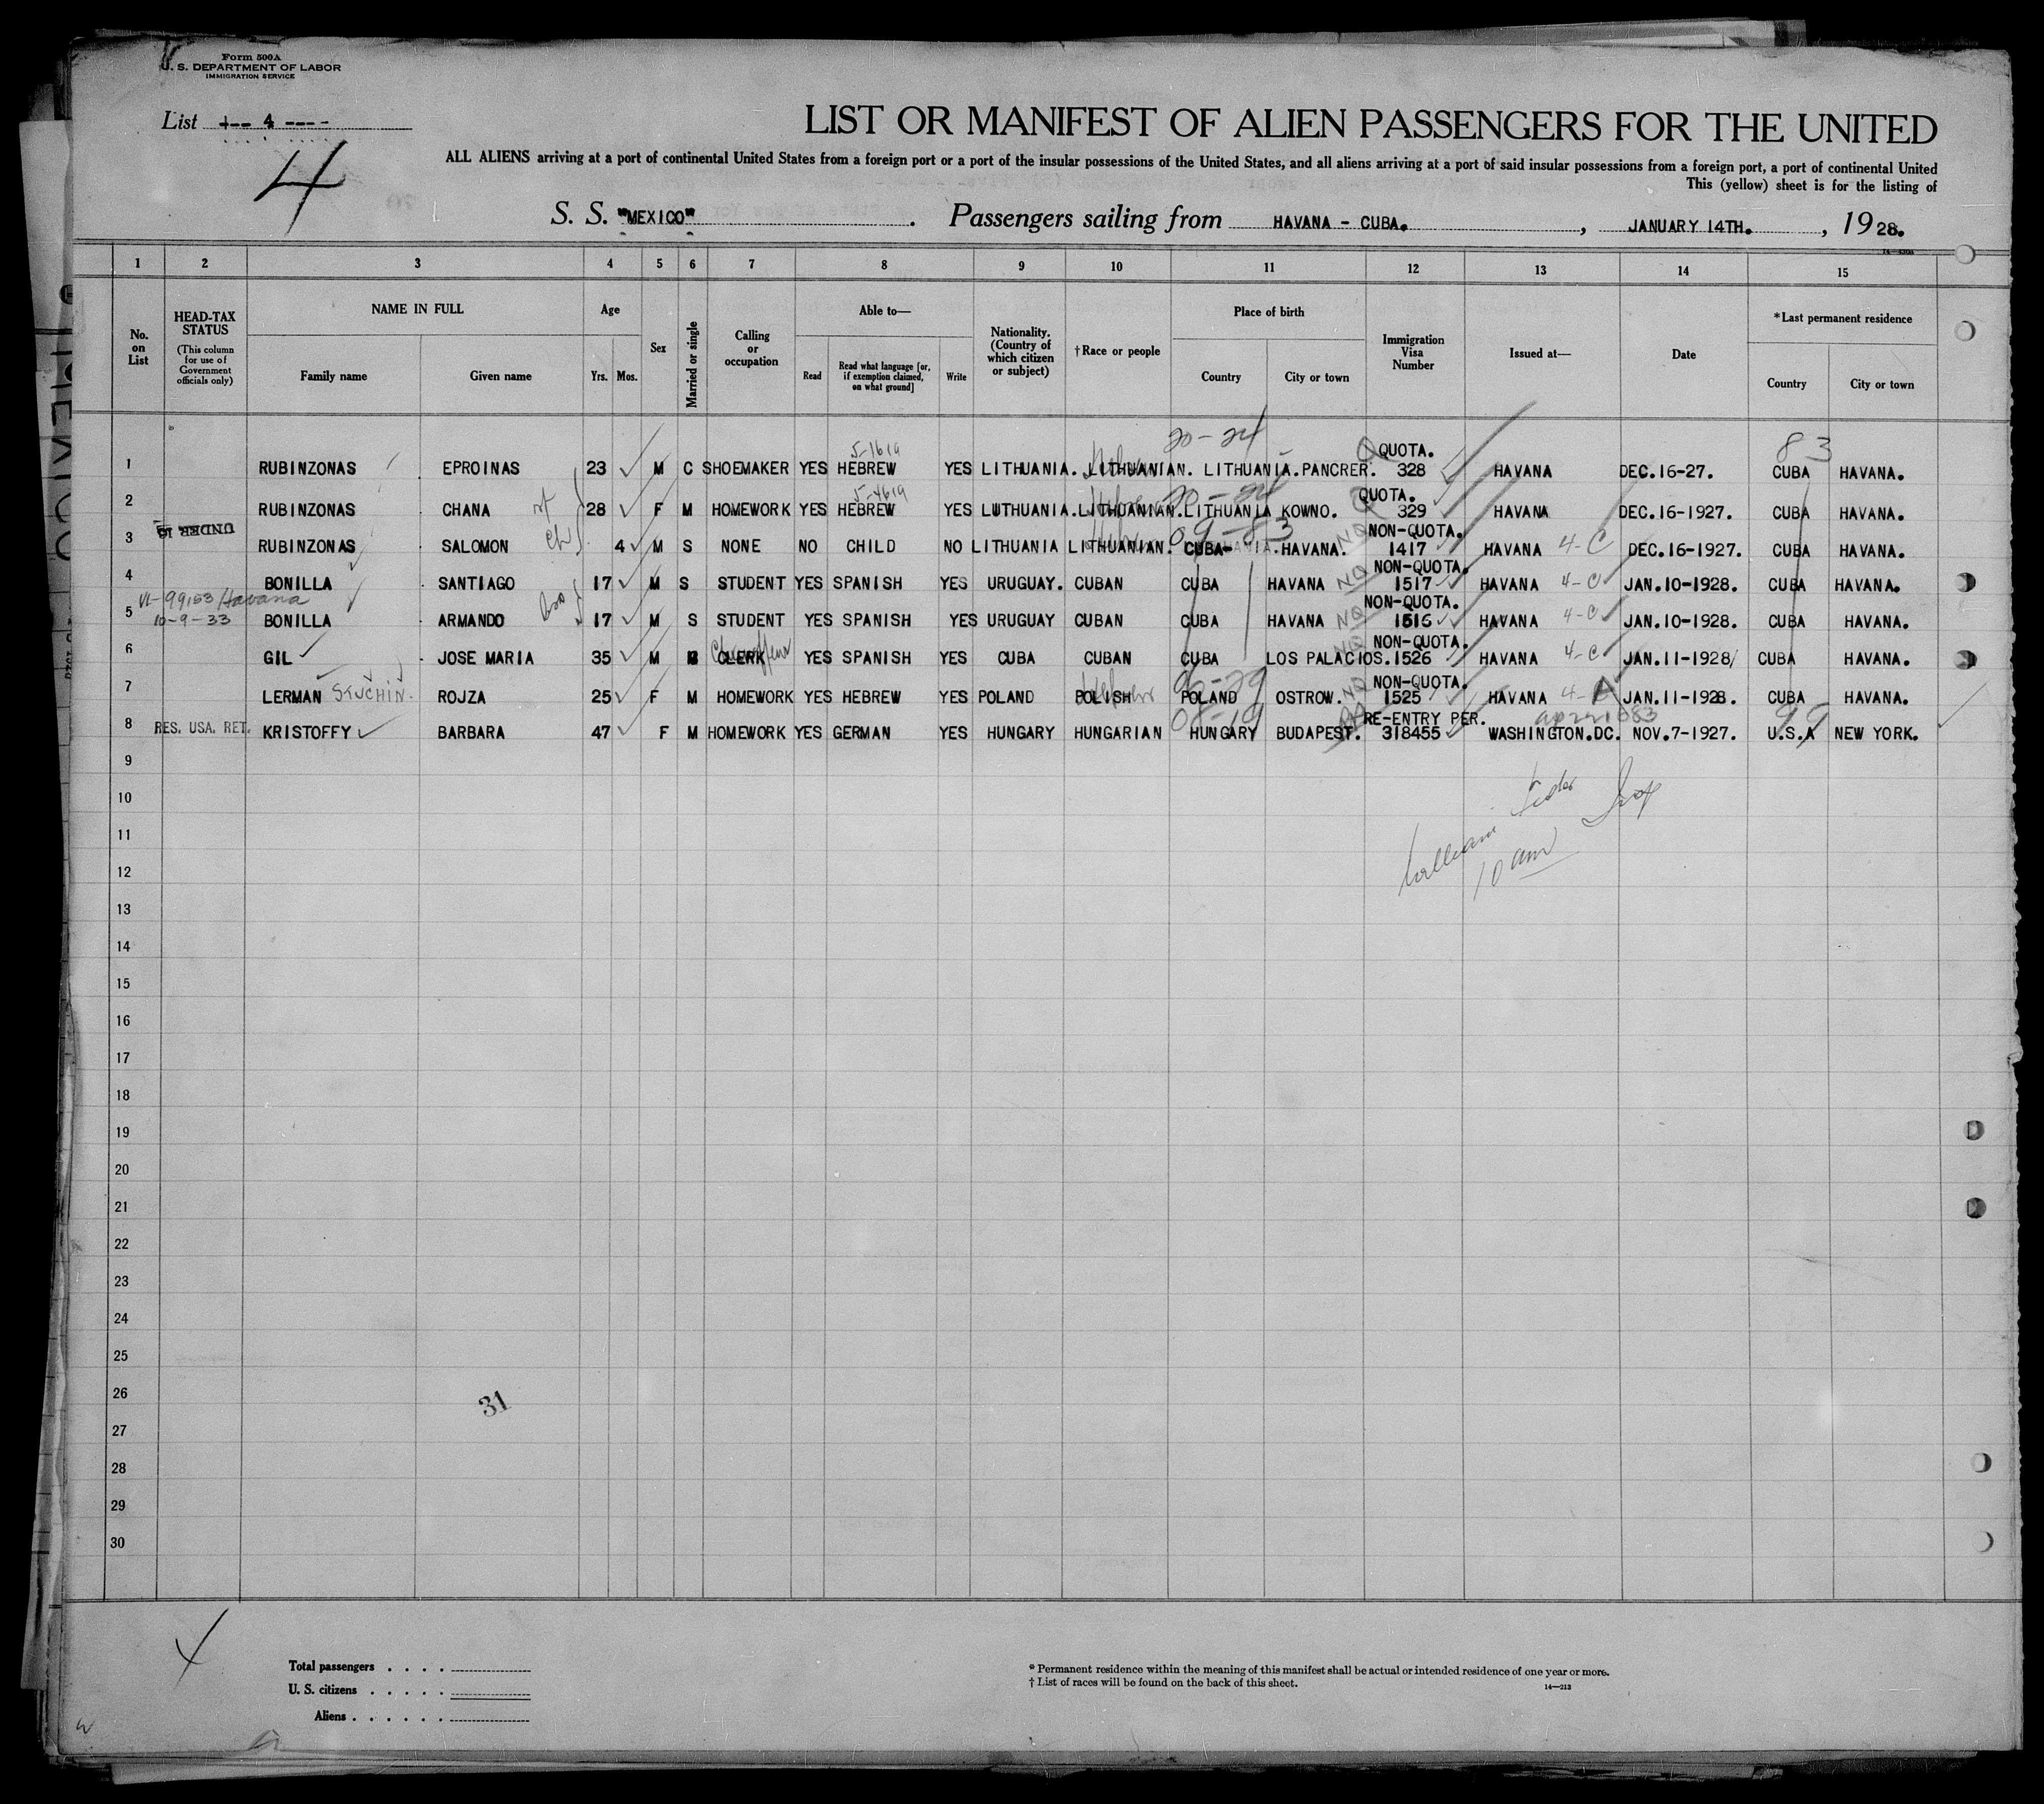 Form 500A
U. S. DEPARTMENT OF LABOR
IMMIGRATION SERVICE
List 4
4
LIST OR MANIFEST OF ALIEN PASSENGERS FOR THE UNITED
ALL ALIENS arriving at a port of continental United States from a foreign port or a port of the insular possessions of the United States, and all aliens arriving at a port of said insular possessions from a foreign port, a port of continental United
This (yellow) sheet is for the listing of
S. S. "MEXICO" . Passengers sailing from HAVANA - CUBA. , JANUARY 14TH. , 1928.
1 2 3 4 5 6 7 8 9 10 11 12 13 14 15
No. on List
HEAD-TAX STATUS (This column for use of Government officials only)
NAME IN FULL
Family name Given name
Age
Yrs. Mos.
Sex
Married or single
Calling or occupation
Able to—
Read
Read what language [or, if exemption claimed, on what ground]
Write
Nationality. (Country of which citizen or subject)
†Race or people
Place of birth
Country City or town
Immigration Visa Number
Issued at—
Date
*Last permanent residence
Country City or town
20-24 83
QUOTA.
1 RUBINZONAS EPROINAS 23 M C SHOEMAKER YES HEBREW YES LITHUANIA. LITHUANIAN. LITHUANIA. PANCRER. 328 HAVANA DEC.16-27. CUBA HAVANA.
QUOTA.
2 RUBINZONAS CHANA 28 F M HOMEWORK YES HEBREW YES LUTHUANIA. LITHUANIAN. LITHUANIA KOWNO. 329 HAVANA DEC.16-1927. CUBA HAVANA.
UNDER 16
09-83 NON-QUOTA.
3 RUBINZONAS SALOMON 4 M S NONE NO CHILD NO LITHUANIA LITHUANIAN. CUBA- HAVANA. 1417 HAVANA 4-C DEC.16-1927. CUBA HAVANA.
NON-QUOTA.
4 BONILLA SANTIAGO 17 M S STUDENT YES SPANISH YES URUGUAY. CUBAN CUBA HAVANA NO 1517 HAVANA 4-C JAN.10-1928. CUBA HAVANA.
Havana
10-9-33
NON-QUOTA.
5 BONILLA ARMANDO bro 17 M S STUDENT YES SPANISH YES URUGUAY CUBAN CUBA HAVANA NO 1516 HAVANA 4-C JAN.10-1928. CUBA HAVANA.
NON-QUOTA.
6 GIL JOSE MARIA 35 M CLERK YES SPANISH YES CUBA CUBAN CUBA LOS PALACIOS. 1526 HAVANA 4-C JAN.11-1928 CUBA HAVANA.
NON-QUOTA.
7 LERMAN STUCHIN. ROJZA 25 F M HOMEWORK YES HEBREW YES POLAND POLISH POLAND OSTROW. NO 1525 HAVANA JAN.11-1928. CUBA HAVANA.
RE-ENTRY PER.
8 RES. USA. RET. KRISTOFFY BARBARA 47 F M HOMEWORK YES GERMAN YES HUNGARY HUNGARIAN HUNGARY BUDAPEST. 318455 WASHINGTON.DC. NOV.7-1927. U.S.A NEW YORK.
9
10
11
12
10 am
13
14
15
16
17
18
19
20
21
22
23
24
25
26
31
27
28
29
30
Total passengers . . . .
U. S. citizens . . . . .
Aliens . . . . . .
* Permanent residence within the meaning of this manifest shall be actual or intended residence of one year or more.
† List of races will be found on the back of this sheet.
14—213